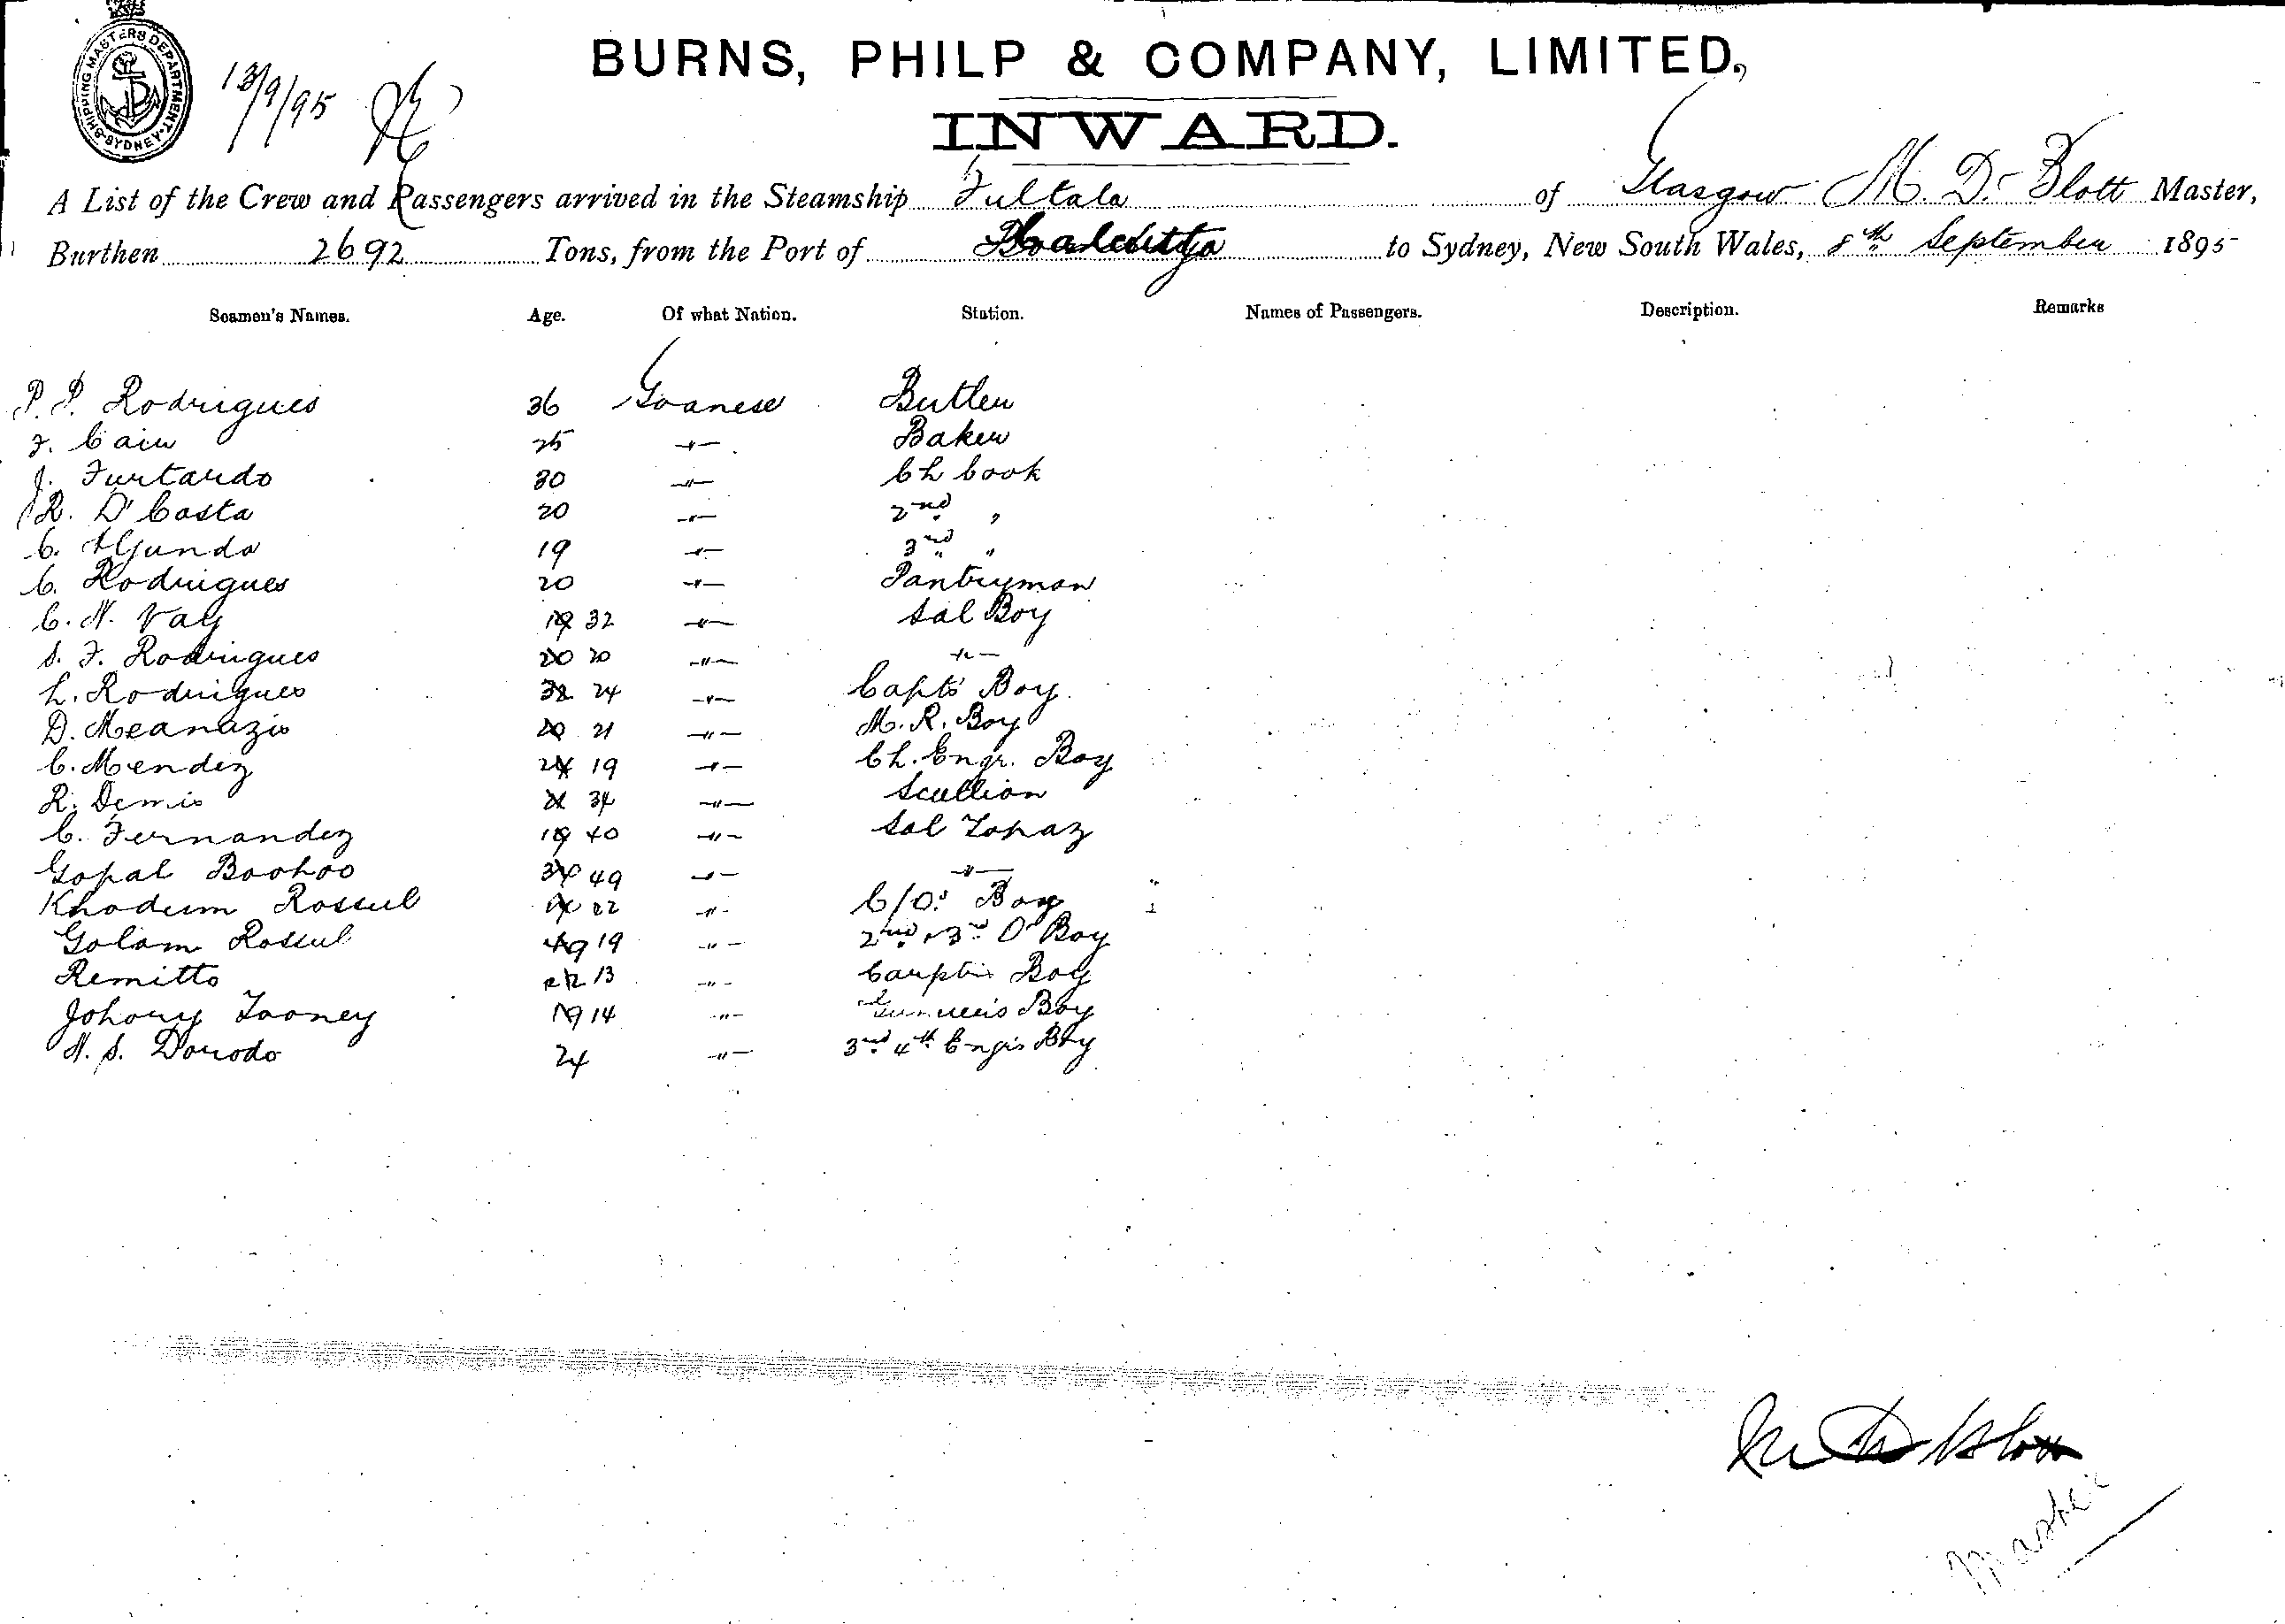 SHIPPING MASTERS DEPARTMENT SYDNEY
13/9/95
BURNS, PHILP & COMPANY, LIMITED,
INWARD.
A List of the Crew and Passengers arrived in the Steamship Fultala of Glasgow M. D. Blott Master,
Burthen 2692 Tons, from the Port of Calcutta to Sydney, New South Wales, 8th September 1895
Seamen's Names. Age. Of what Nation. Station. Names of Passengers. Description. Remarks
P. P. Rodrigues 36 Goanese Butler
F. Cain 25 -"- Baker
J. Furtardo 30 -"- Ch Cook
R. D'Costa 20 -"- 2nd "
C. 19 -"- 3rd "
C. Rodrigues 20 -"- Pantryman
C. N. Vaz 19 32 -"- Sal Boy
S. F. Rodrigues 20 20 -"- -"-
L. Rodrigues 32 24 -"- Capts Boy.
D. Meanazis 20 21 -"- M. R. Boy
C. Mendez 24 19 -"- Ch. Engr. Boy
R. Demis 21 34 -"- Scullion
C. Fernandez 19 40 -"- Sal Topaz
Gopal Boohoo 34 49 -"- -"-
Khodum Rossul 22 -"- C/O's Boy
Golam Rossul 49 19 -"- 2nd & 3rd O Boy
Remitto 22 13 -"- Carptrs Boy
Johony Tooney 19 14 -"- Gunners Boy
N. S. Dorodo 24 -"- 3rd 4th Engrs Boy
M D Blott
Master